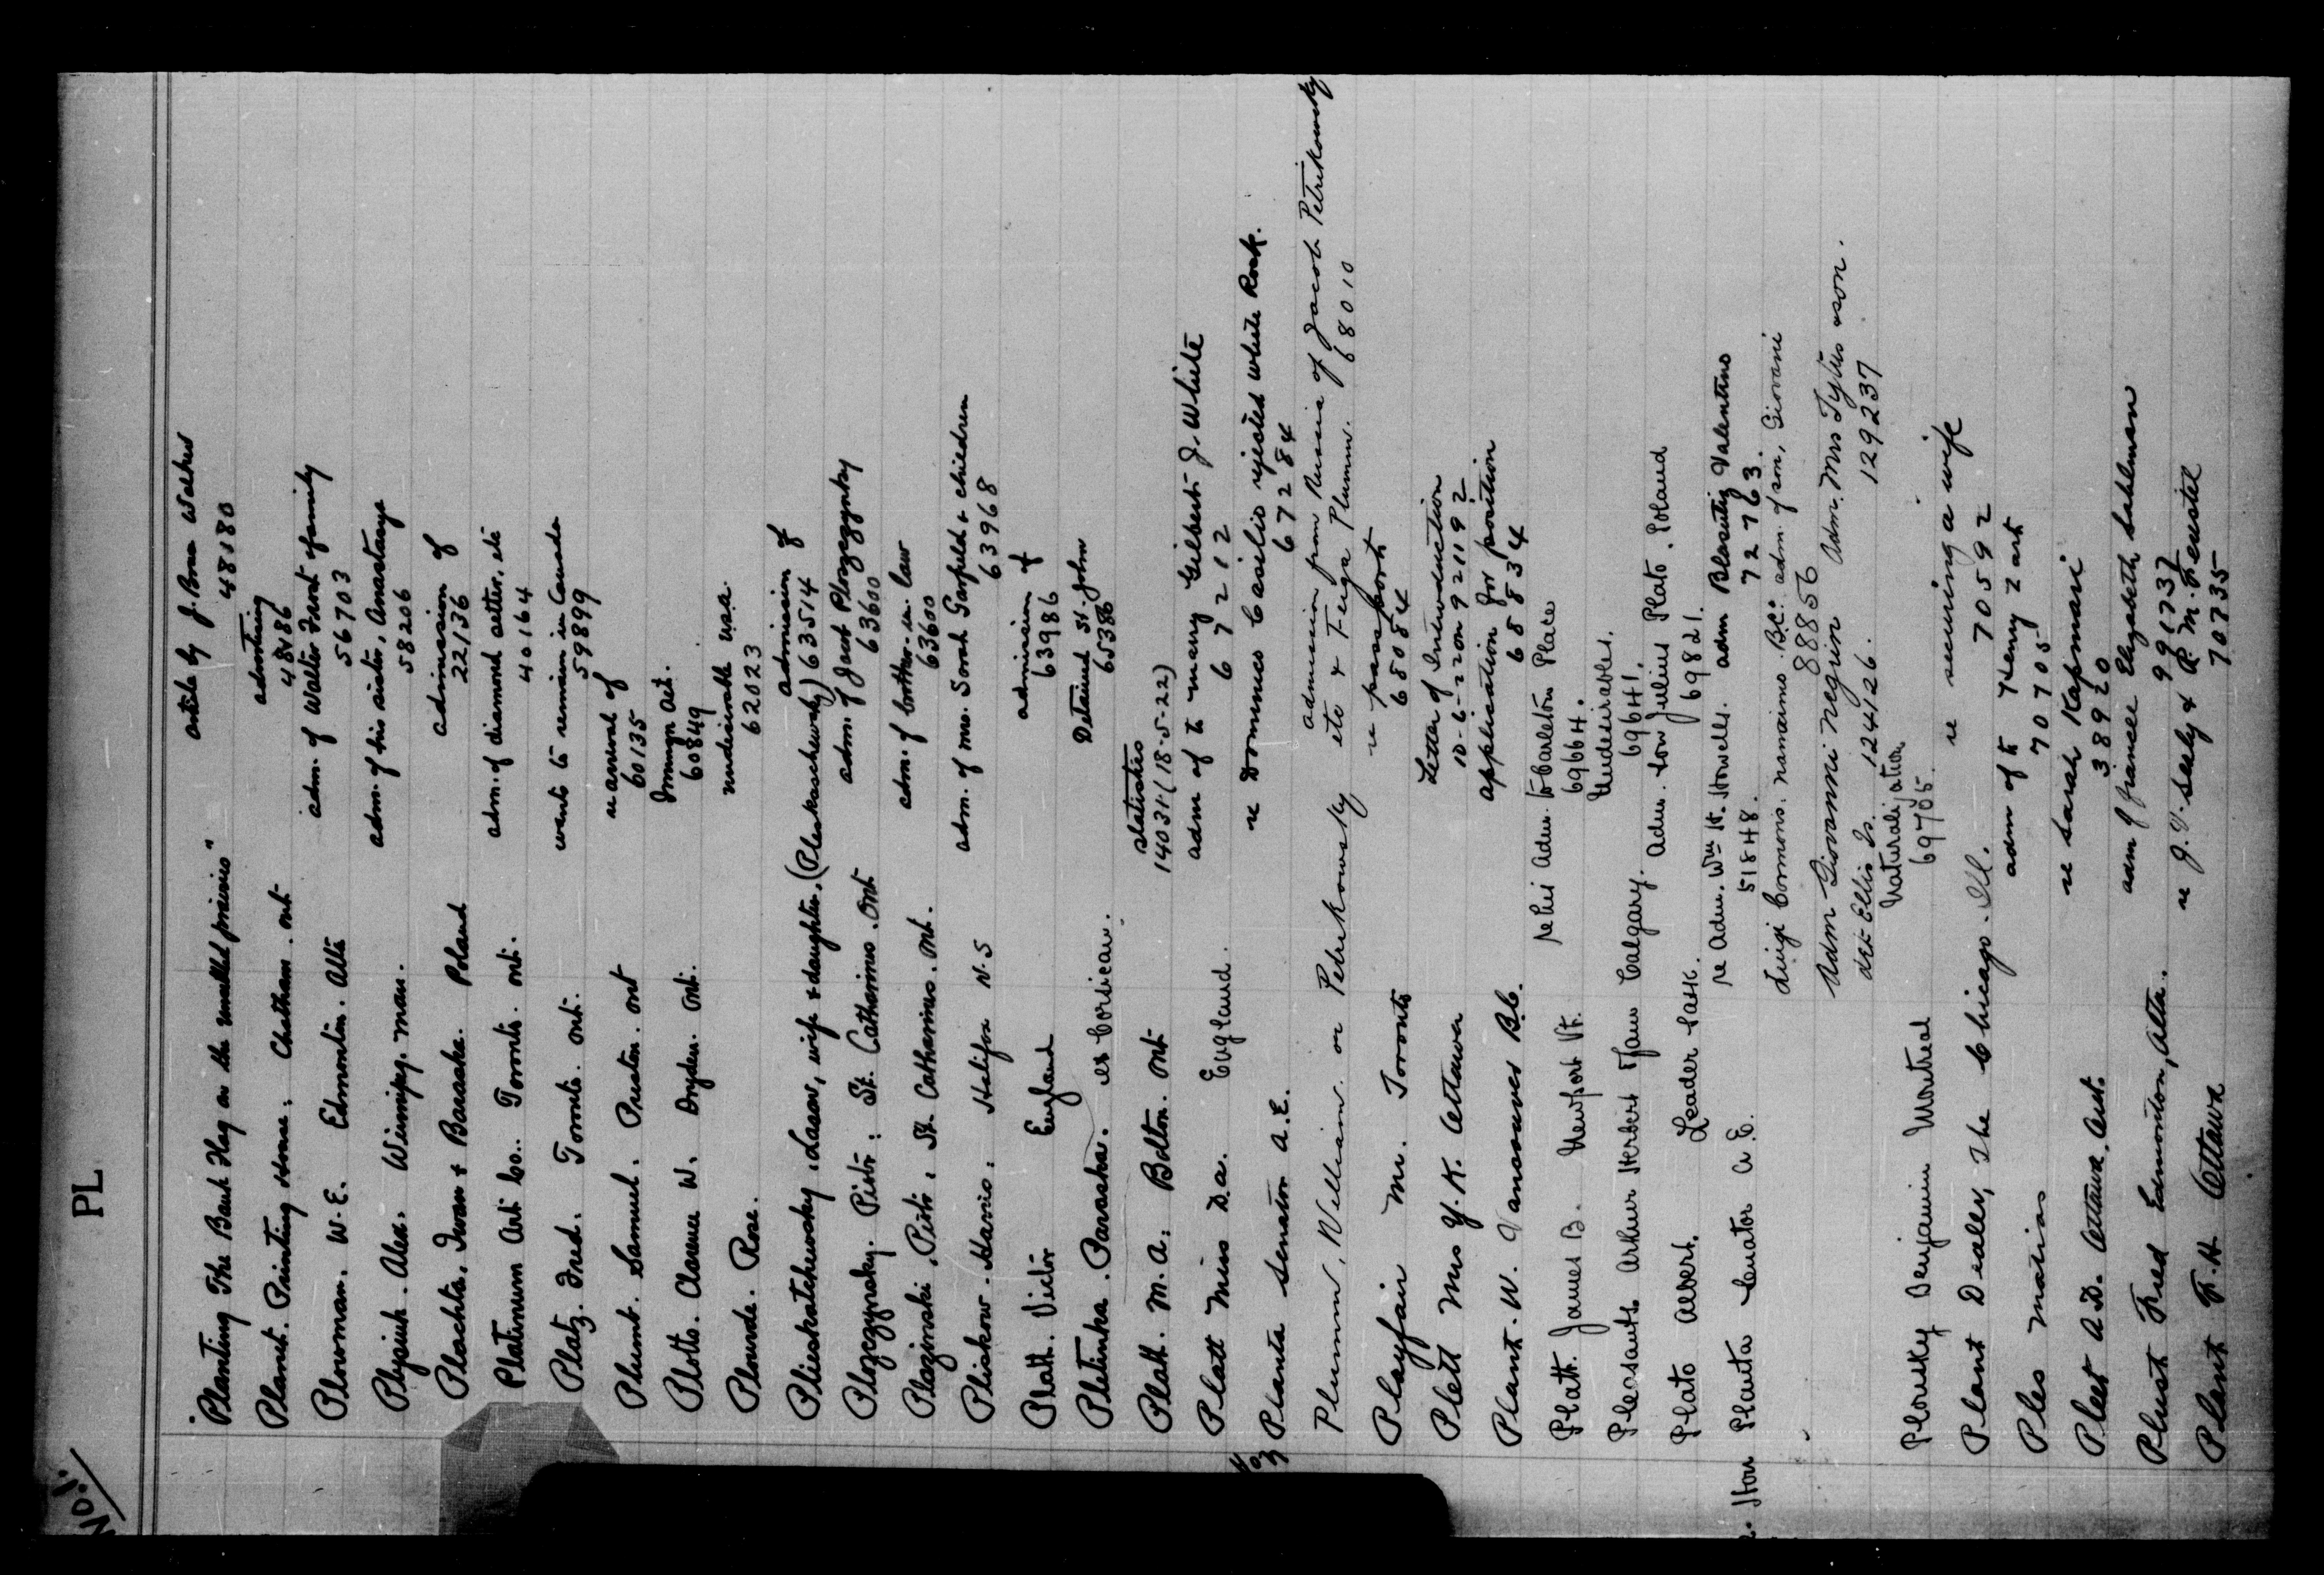 No. 1.
PL
"Planting The Bank Flag on the prairie" article by J. Walker
48180
Planet. Printing House. Chatham. Ont advertising
48486
Plowman. W.E. Edmonton. Alta adm. of Walter Frost & family
56703
Plysiuk. Alex. Winnipeg. Man. adm. of his sister, Anastasya
58206
Plachta, Iwan & Baraska. Poland admission of
22136
Platinum Art Co. Toronto. Ont. adm. of diamond setter, etc
40164
Platz. Fred. Toronto. Ont. wants to remain in Canada
59899
Plumb. Samuel. Preston. Ont re arrival of
60135
Plotts. Clarence W. Dryden. Ont. Immign Act.
60849
Plourde. Rose. undesirable U.S.A.
62023
Plieskatchewsky, Lasar, wife & daughter, (Pleskaschewsky) admission of
63514
Plozegzynsky. Piotr. St. Catharines. Ont adm. of Jacut Plozegzynsky
63600
Plozinski, Piotr. St. Catharines. Ont. adm. of brother-in-law
63600
Pliskow. Harris. Halifax N.S adm. of Mrs. Sarah Garfield & children
63968
Platt. Victor England admission of
63986
Pletinka. Paraska. ex Corsican. Detained St. John
65386
Platt. M.A. Bolton. Ont statistics
14031 (18-5-22)
Platt Miss D.A. England. adm of to Mary Gilbert J. White
67212
Planta Senator A.E. re Domines Casilio rejected White Rock.
67284
Plumm, William or Petrikowsky etc & Feiga Plumm. admission from Russia of Jacob Petrikowsky
68010
Playfair Mr. Toronto re passport
68084
Plett Mrs Y.K. Ottawa Letter of Introduction
10-6-22 on 921192
Plant. W. Vancouver B.C. application for position
68834
Platt. James B. Newport Vt. re his adm. to Carleton Place
69664.
Pleasants Arthur Herbert Calgary. Undesirables.
69641.
Plato Albert. Leader Sask. adm. to Julius Plato. Poland
69821.
Hon Planta Senator A.E. re Adm. Wm H. Howells. adm Blasutig Valentino
51848. 72763.
Luigi Cormons. Nanaimo. B.C. adm. of son, Giovani
88856
Adm Giovanni Negrin Adm. Mrs Tytus & son.
det Ellis Is. 124126. 129237
Plousky Benjamin Montreal Naturalization
69705.
Plant Dealer, The Chicago. Ill. re securing a wife
70592
Ples Matias adm of to Henry Zark
70705
Pleet A.D. Ottawa, Ont. re Sarah Kapmari
38920
Plust Fred Edmonton, Alta. adm of fiancee Elizabeth Sahlman
991737
Plant F.H Ottawa re J.V. Sealy & R.M. Feustel
70735